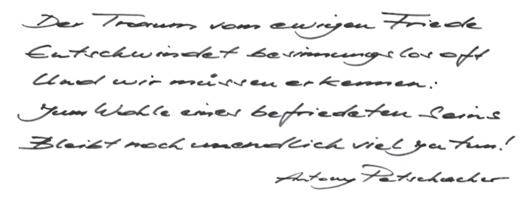 Der Traum vom ewigen Friede
Entschwindet besinnungslos oft
Und wir müssen erkennen:
Zum Wohle eines befriedeten Seins
Bleibt noch unendlich viel zu tun!
Antony Petschacher